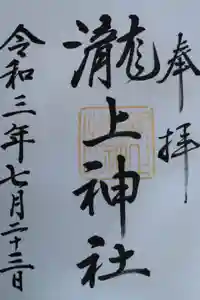 奉拝
瀧上神社
令和三年七月二十三日